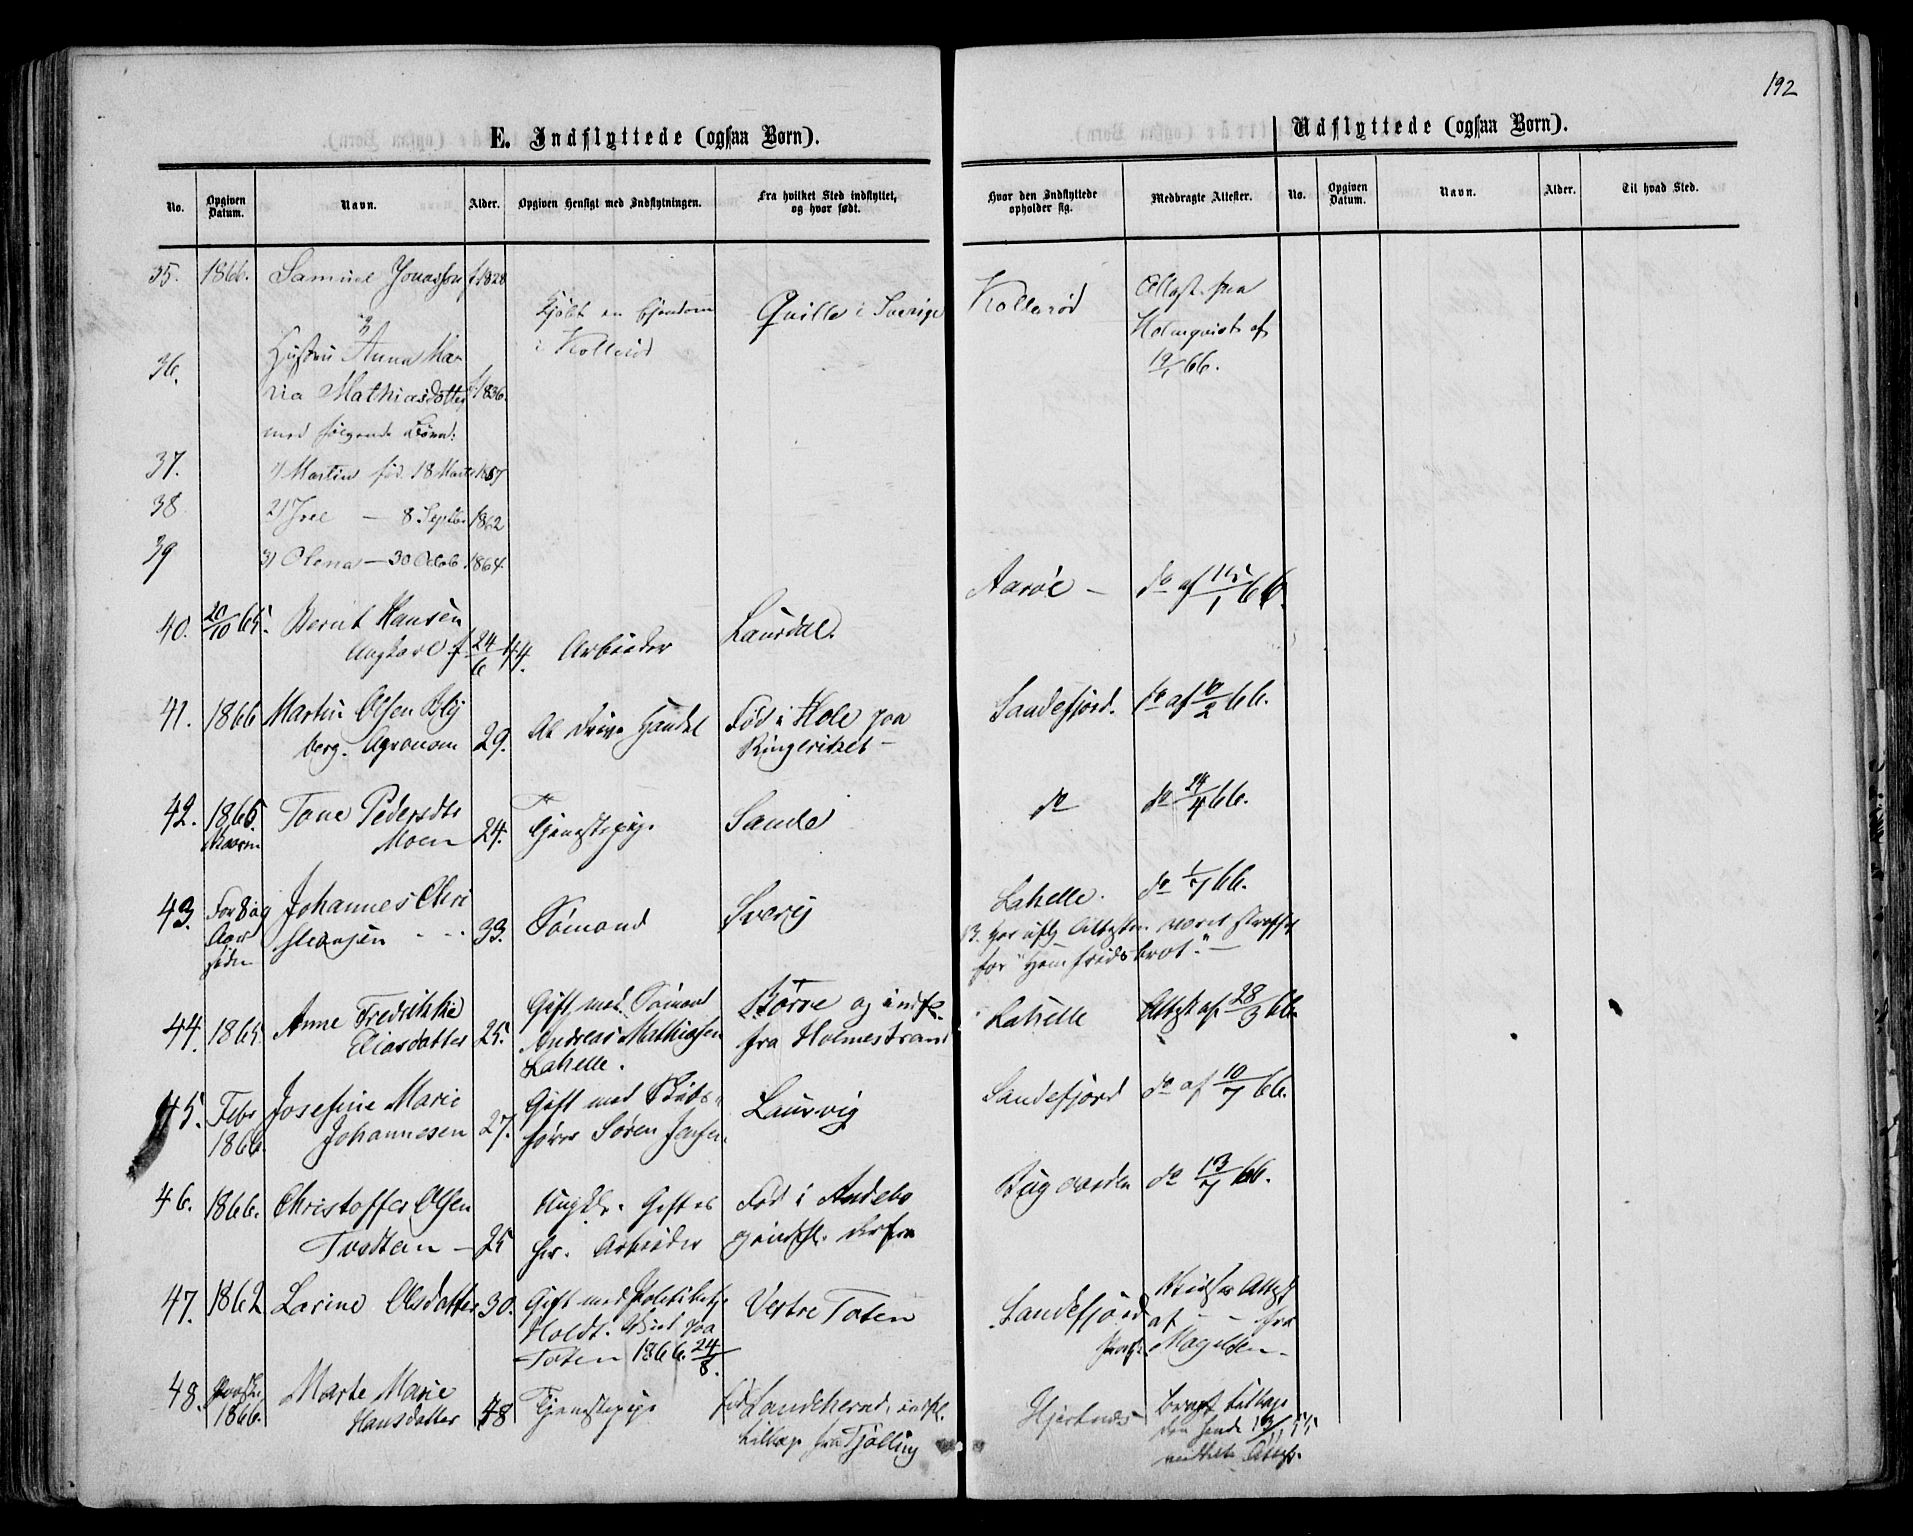 192
E. Indflyttede (ogsaa Børn).
Udflyttede (ogsaa Børn).
No.
Opgiven Datum.
Navn.
Alder.
Opgiven Hensigt med Indflytningen.
Fra hvilket Sted indflyttet, og hvor født.
Hvor den Indflyttede opholder sig.
Medbragte Attester.
No.
Opgiven Datum.
Navn.
Alder.
Til hvad Sted.
35. 1866. Samuel Jonasson f. 1828
Kjøbt en Eiendom Qville i Sverige Kollerød Attest fra
i Kollerød Holmqvist af
19/1 66.
36. Hustru Anna Ma-
ria Mathiasdatter f. 1836.
med følgende Børn:
37. 1) Martin fød. 18 Marts 1857
38 2) Joel — 8 Septbr 1862
39 3) Olena — 30 Octob. 1864
40. 20/10 65. Bernt Hansen
Ungkarl f. 24/6 44. Arbeider Laurdal. Aarøe — do af 16/1 66.
41. 1866 Martin Olsen Bly
berg. Agronom 29. At drive Handel Fød i Hole paa
Ringeriket — Sandefjord. do af 10/2 66.
42. 1866 Tone Pedersdtr
Moen 24. Tjenestepige Sande do do 24/4 66.
43. For 8 og Johannes Chri
stiansen 33. Sømand Sverig Lahelle. do 1/7 66.
13. har Attesten været straffet
for "Hemfridsbrot." —
44. 1865 Anne Fredrikke
Eliasdatter 25. Gift med Sømand
Andreas Mathiasen
Lahelle. Borre og indfl.
fra Holmestrand Lahelle Attest af 28/3 66.
45. Febr
1866 Josefine Marie
Johannesen 27. Gift med
Søren Laurvig Sandefjord do af 10/7 66.
46. 1866. Christoffer Olsen
Tvedten — 25 Ungk. Giftes
her. Arbeider Fød i Andebo
og indfl. derfra Bugaarden do 13/7 66.
47. 1862 Larine Olsdatter 30. Gift med Politibetj.
Holdt. Viet paa
Toten 1866. 24/8. Vestre Toten Sandefjord Attest
af — — fra
Magelden —
48. 1866. Marte Marie
Hansdatter 48 Tjenestepige fød Sandeherred, indfl.
tilbage fra Tjølling Hjertnes bragt tilbage
den hende 13/11 55
meddelte Attest.